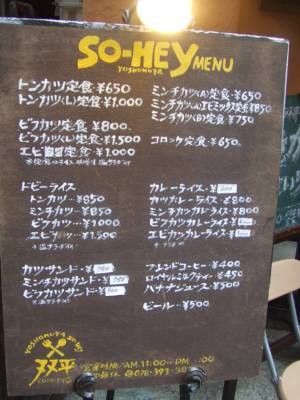 SO-HEY MENU
YOSHOKUYA
トンカツ定食・¥650
トンカツ(L)定食・¥1,000
ビフカツ定食・¥800
ビフカツ(L)定食・¥1,500
エビ定食・¥1,000
ミンチカツ(A)定食・¥650
ミンチカツ(A)エビミックス定食¥850
ミンチカツ(B)定食・¥750
コロッケ定食・¥650
ドビーライス
トンカツ・・¥850
ミンチカツ・・¥850
ビフカツ・・・¥1,000
エビカツ・・・¥1,500
カレーライス・¥500
カツカレーライス・¥800
ミンチカツカレーライス・¥800
ビフカツカレーライス
エビカツカレーライス
カツサンド・
ミンチカツサンド・
ビフカツサンド・
ブレンドコーヒー・¥400
ロイヤルミルクティー・¥450
バナナジュース・¥500
ビール・・¥500
YOSHOKUYA SO-HEY
双平
COOKING
営業時間/AM.11:00~PM
☎078-393-38